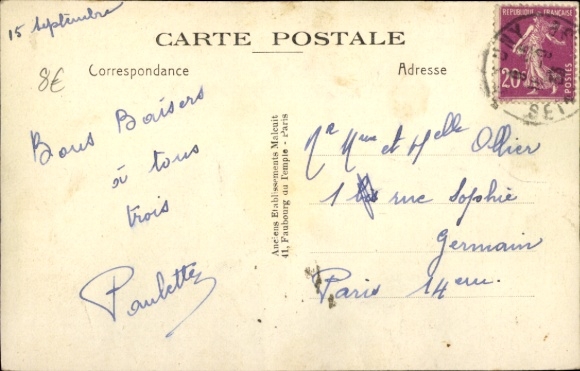 15 septembre
CARTE POSTALE
8€
Correspondance
Adresse
REPUBLIQUE FRANÇAISE
20c
POSTES
Bons Baisers
à tous
trois
Paulette
Anciens Etablissements Malcuit
41, Faubourg du Temple - Paris
Mr Mme et Melle Ollier
1 rue Sophie
Germain
Paris 14em.